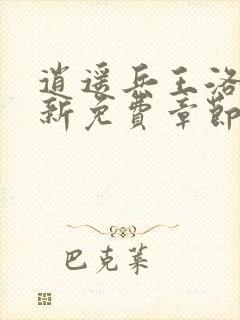 逍遥兵王洛
新免费章节
巴克莱